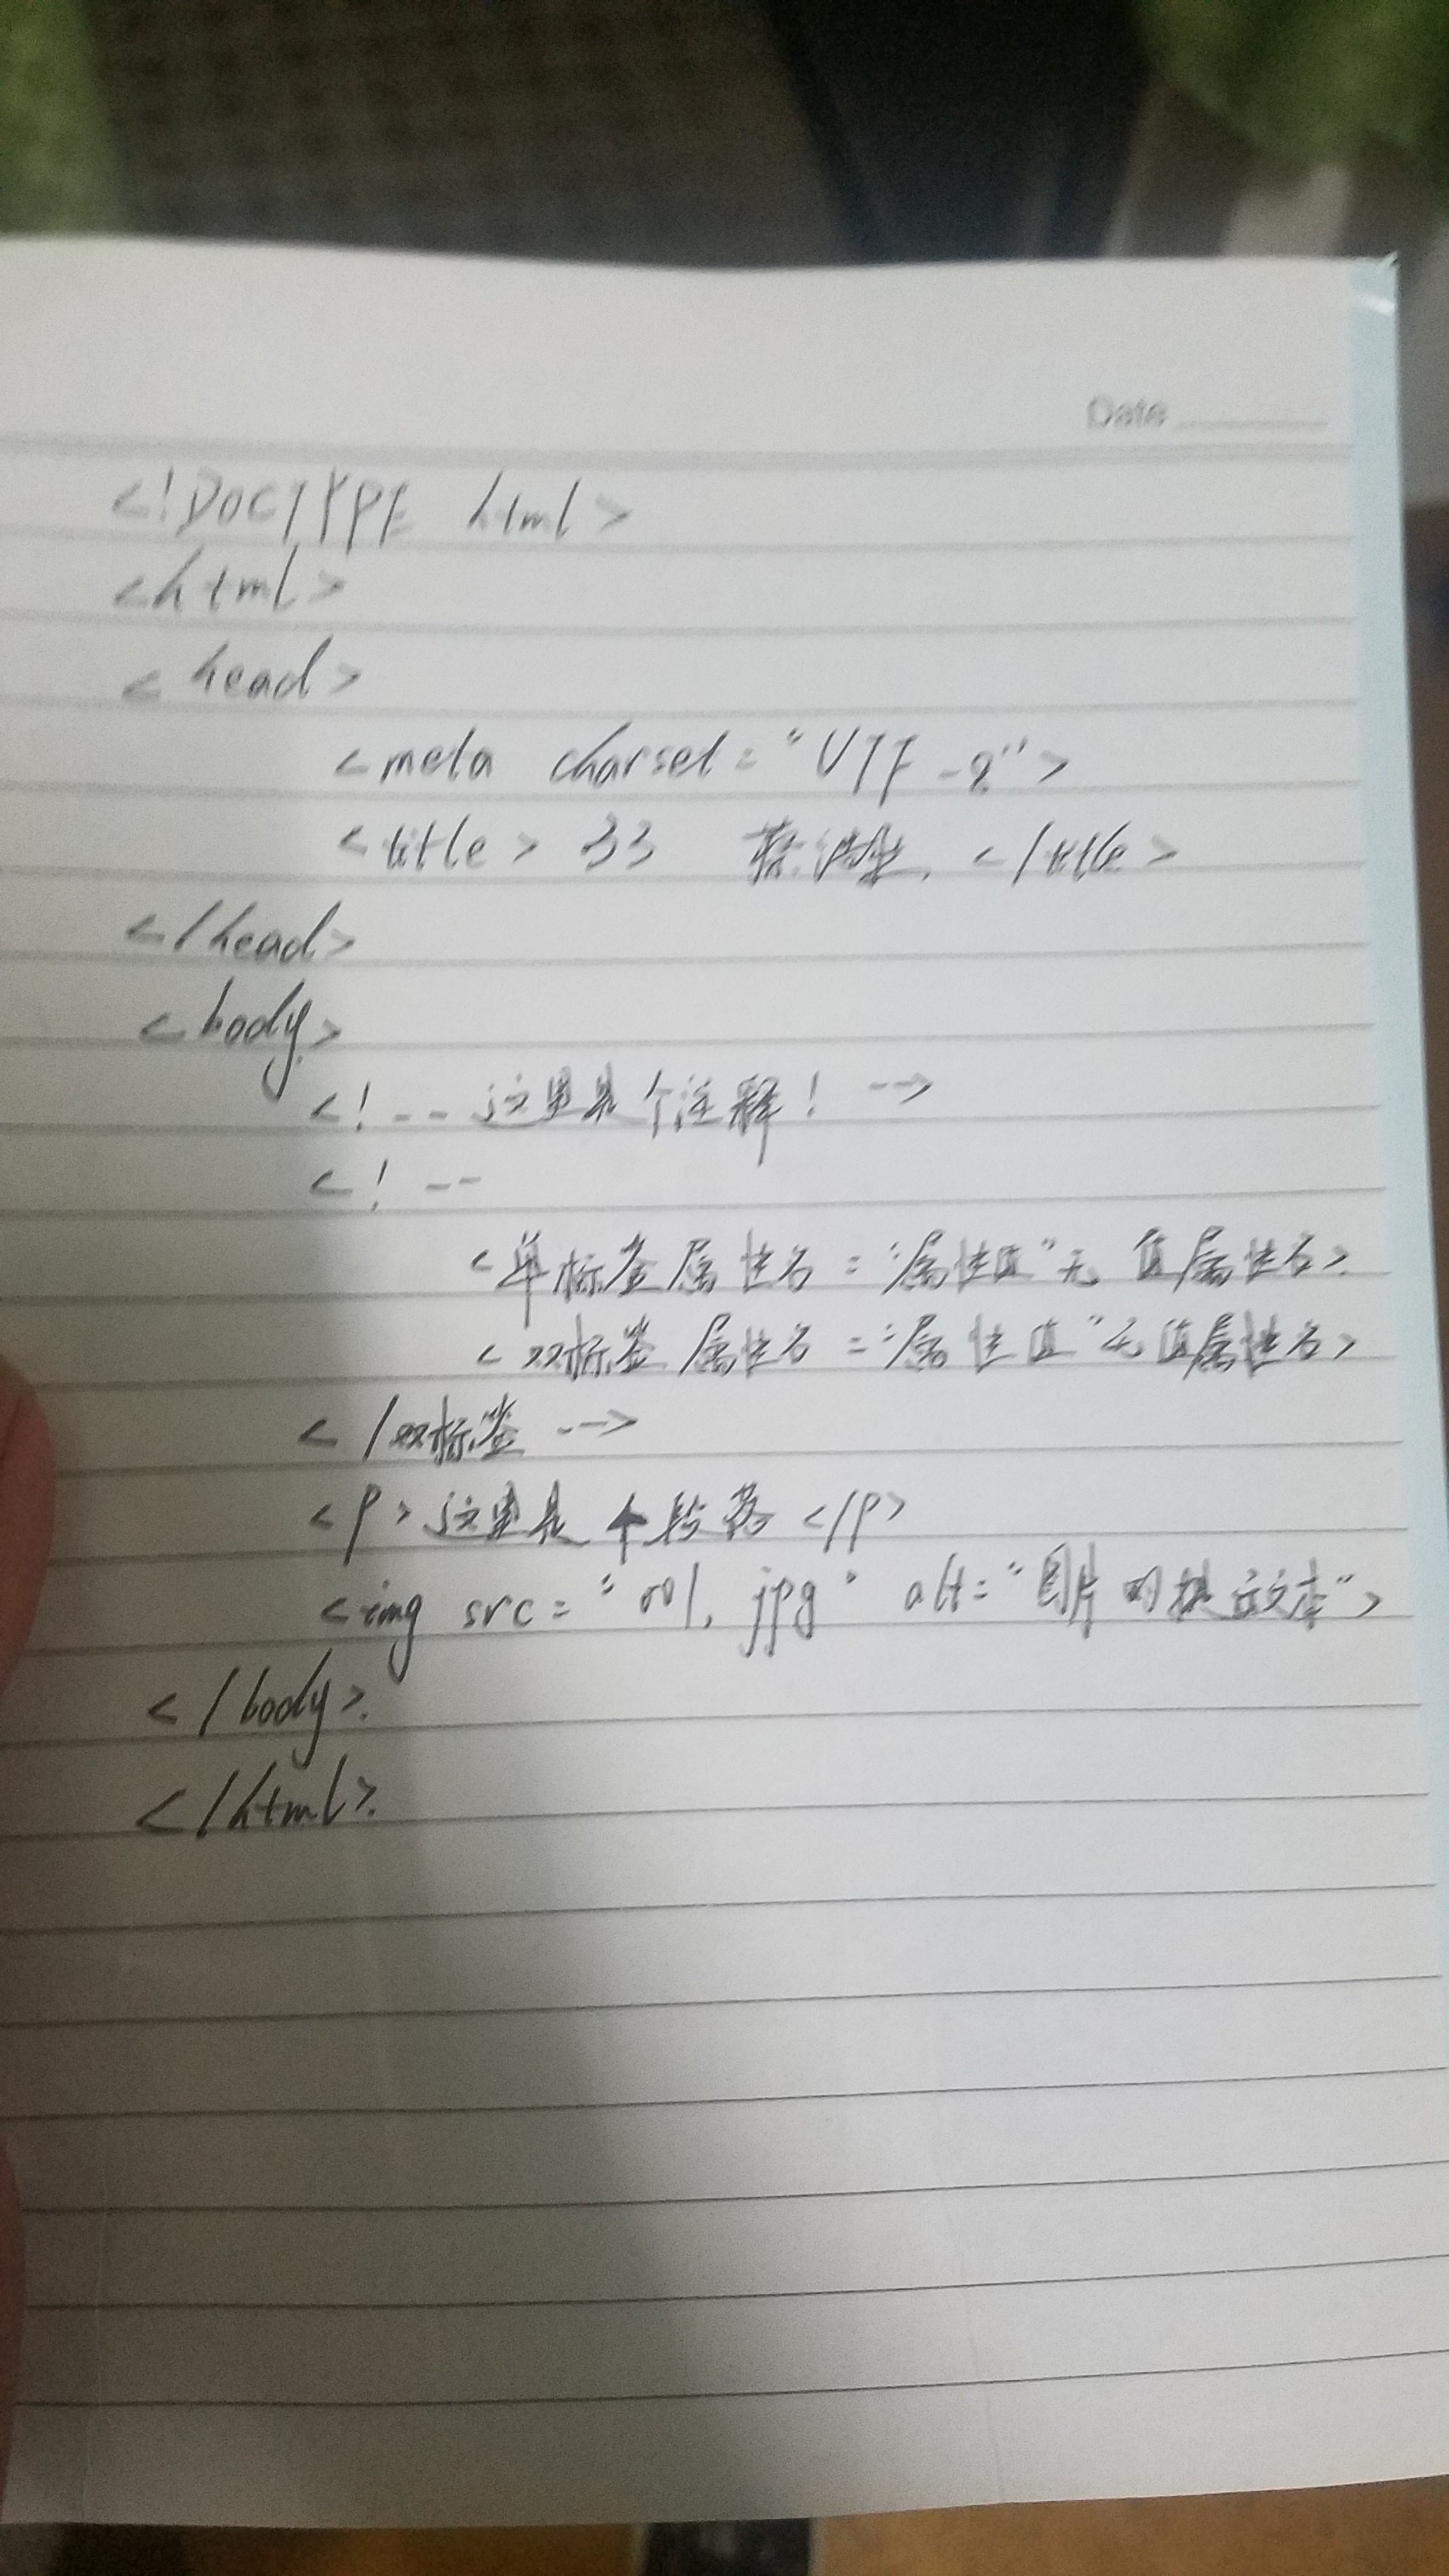 Date
<!DOCTYPE html>
<html>
<head>
<meta charset="UTF-8">
<title>33 </title>
</head>
<body>
<!--这里是个注释! -->
<!--
<单标签属性名="属性值"无值属性名>
<双标签 属性名="属性值"无值属性名>
</双标签 -->
<p>这里是个段落</p>
<img src="001.jpg" alt="图片的提示文本">
</body>
</html>